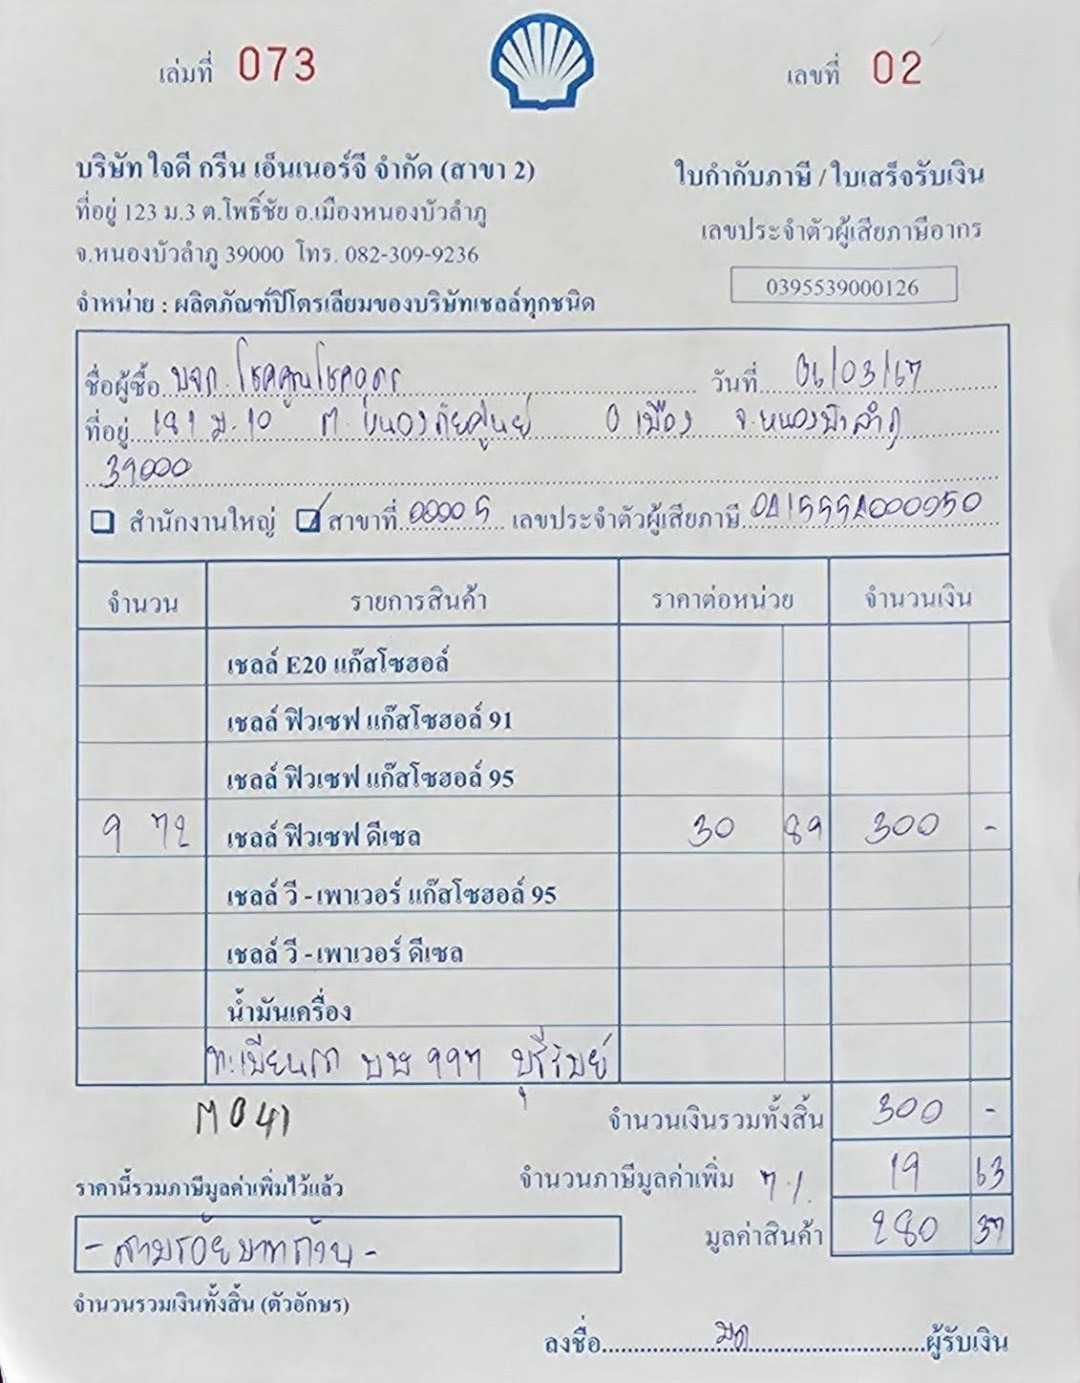 เล่มที่ 073
เลขที่ 02
บริษัท ใจดี กรีน เอ็นเนอร์จี จำกัด (สาขา 2)
ใบกำกับภาษี / ใบเสร็จรับเงิน
ที่อยู่ 123 ม.3 ต.โพธิ์ชัย อ.เมืองหนองบัวลำภู
เลขประจำตัวผู้เสียภาษีอากร
จ.หนองบัวลำภู 39000 โทร. 082-309-9236
0395539000126
จำหน่าย : ผลิตภัณฑ์ปิโตรเลียมของบริษัทเชลล์ทุกชนิด
ชื่อผู้ซื้อ บจก. โชคคูณโชคอุดร วันที่ 06/03/67
ที่อยู่ 181 ม.10 ต. หนองภัยศูนย์ อ เมือง จ.หนองบัวลำภู
39000
สำนักงานใหญ่ สาขาที่ 00005 เลขประจำตัวผู้เสียภาษี
จำนวน รายการสินค้า ราคาต่อหน่วย จำนวนเงิน
เชลล์ E20 แก๊สโซฮอล์
เชลล์ ฟิวเซฟ แก๊สโซฮอล์ 91
เชลล์ ฟิวเซฟ แก๊สโซฮอล์ 95
9 72 เชลล์ ฟิวเซฟ ดีเซล 30 89 300 -
เชลล์ วี - เพาเวอร์ แก๊สโซฮอล์ 95
เชลล์ วี - เพาเวอร์ ดีเซล
น้ำมันเครื่อง
ทะเบียนรถ 997 บุรีรัมย์
M041
จำนวนเงินรวมทั้งสิ้น 300 -
ราคานี้รวมภาษีมูลค่าเพิ่มไว้แล้ว
จำนวนภาษีมูลค่าเพิ่ม 7% 19 63
มูลค่าสินค้า 280 37
- สามร้อยบาทถ้วน -
จำนวนรวมเงินทั้งสิ้น (ตัวอักษร)
ลงชื่อ..........ผู้รับเงิน